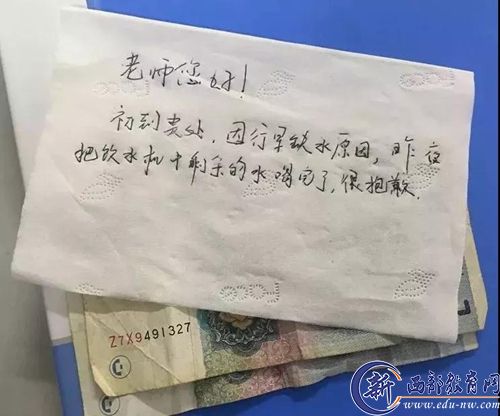 老师您好！
初到贵处，因行李缺水原因，昨夜
把饮水机中剩余的水喝完了，很抱歉。
Z7X9491327
新 西部教育网
www.edu-nw.com